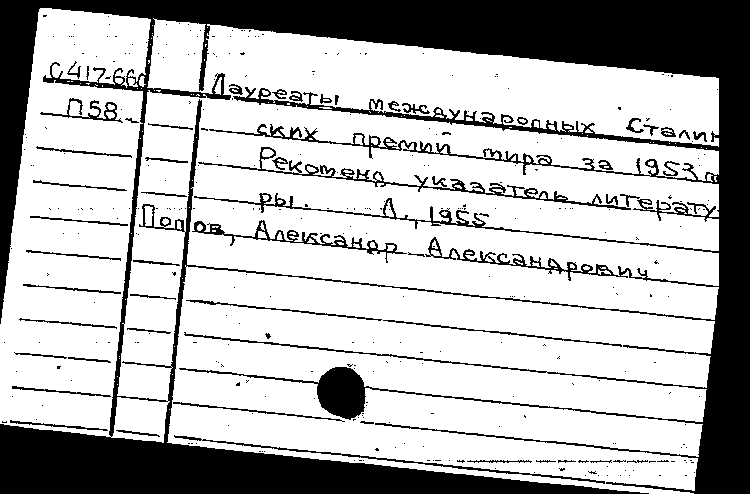 С417-660
Лауреаты международных Сталин
П58
ских премий мира за 1953 г.
Рекоменд. указатель литерату-
ры. Л., 1955
Попов, Александр Александрович